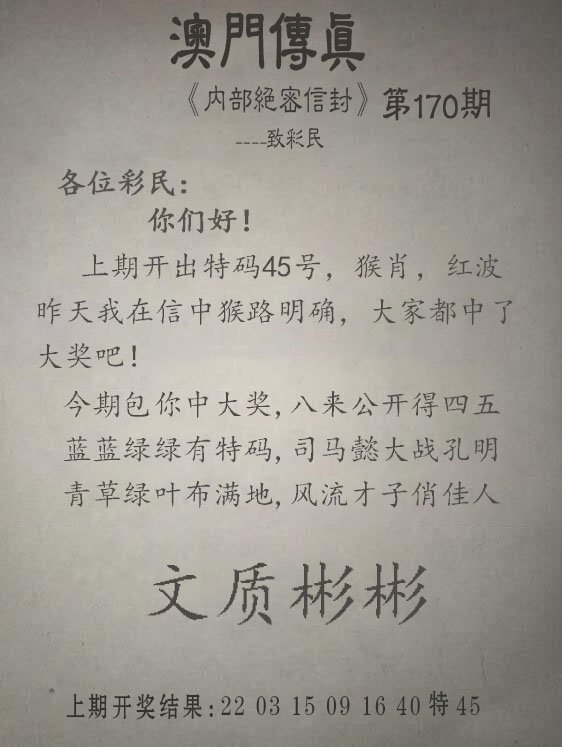 澳門傳眞
《内部絕密信封》第170期
----致彩民
各位彩民：
你们好！
上期开出特码45号，猴肖，红波
昨天我在信中猴路明确，大家都中了
大奖吧！
今期包你中大奖,八来公开得四五
蓝蓝绿绿有特码,司马懿大战孔明
青草绿叶布满地,风流才子俏佳人
文质彬彬
上期开奖结果:22 03 15 09 16 40 特 45